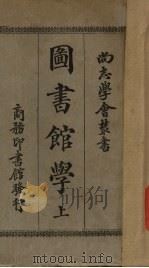 尚志學會叢書
圖書館學 上
商務印書館發行
www.toopoo.com